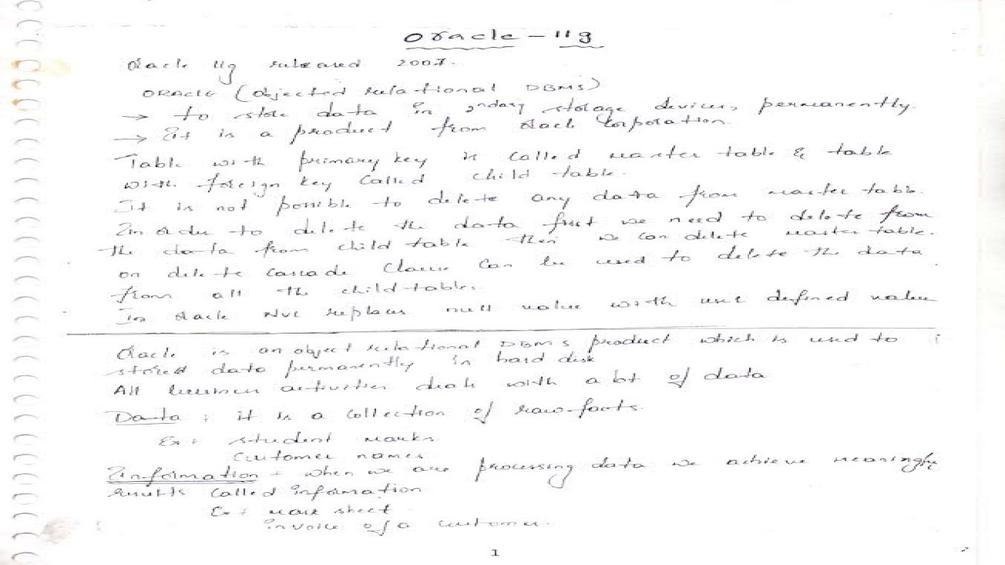 Oracle - 11g
Oracle 11g released 2007.
ORACLE (Objected relational DBMS)
→ to store data in 2ndary storage devices, permanently.
→ It is a product from Oracle Corporation.
Table with primary key is called master table & table
with foreign key called child table.
It is not possible to delete any data from master table.
In order to delete the data first we need to delete from
the data from child table then we can delete master table.
on delete cascade clause can be used to delete the data
from all the child tables.
In Oracle NVL replaces null value with user defined value
Oracle is an object relational DBMS product which is used to
stored data permanently in hard disk
All business activities deals with a lot of data
Data : it is a collection of raw-facts.
Ex : student marks
customer names
Information : when we are processing data we achieve meaningful
results called information
Ex : mark sheet
invoice of a customer.
1